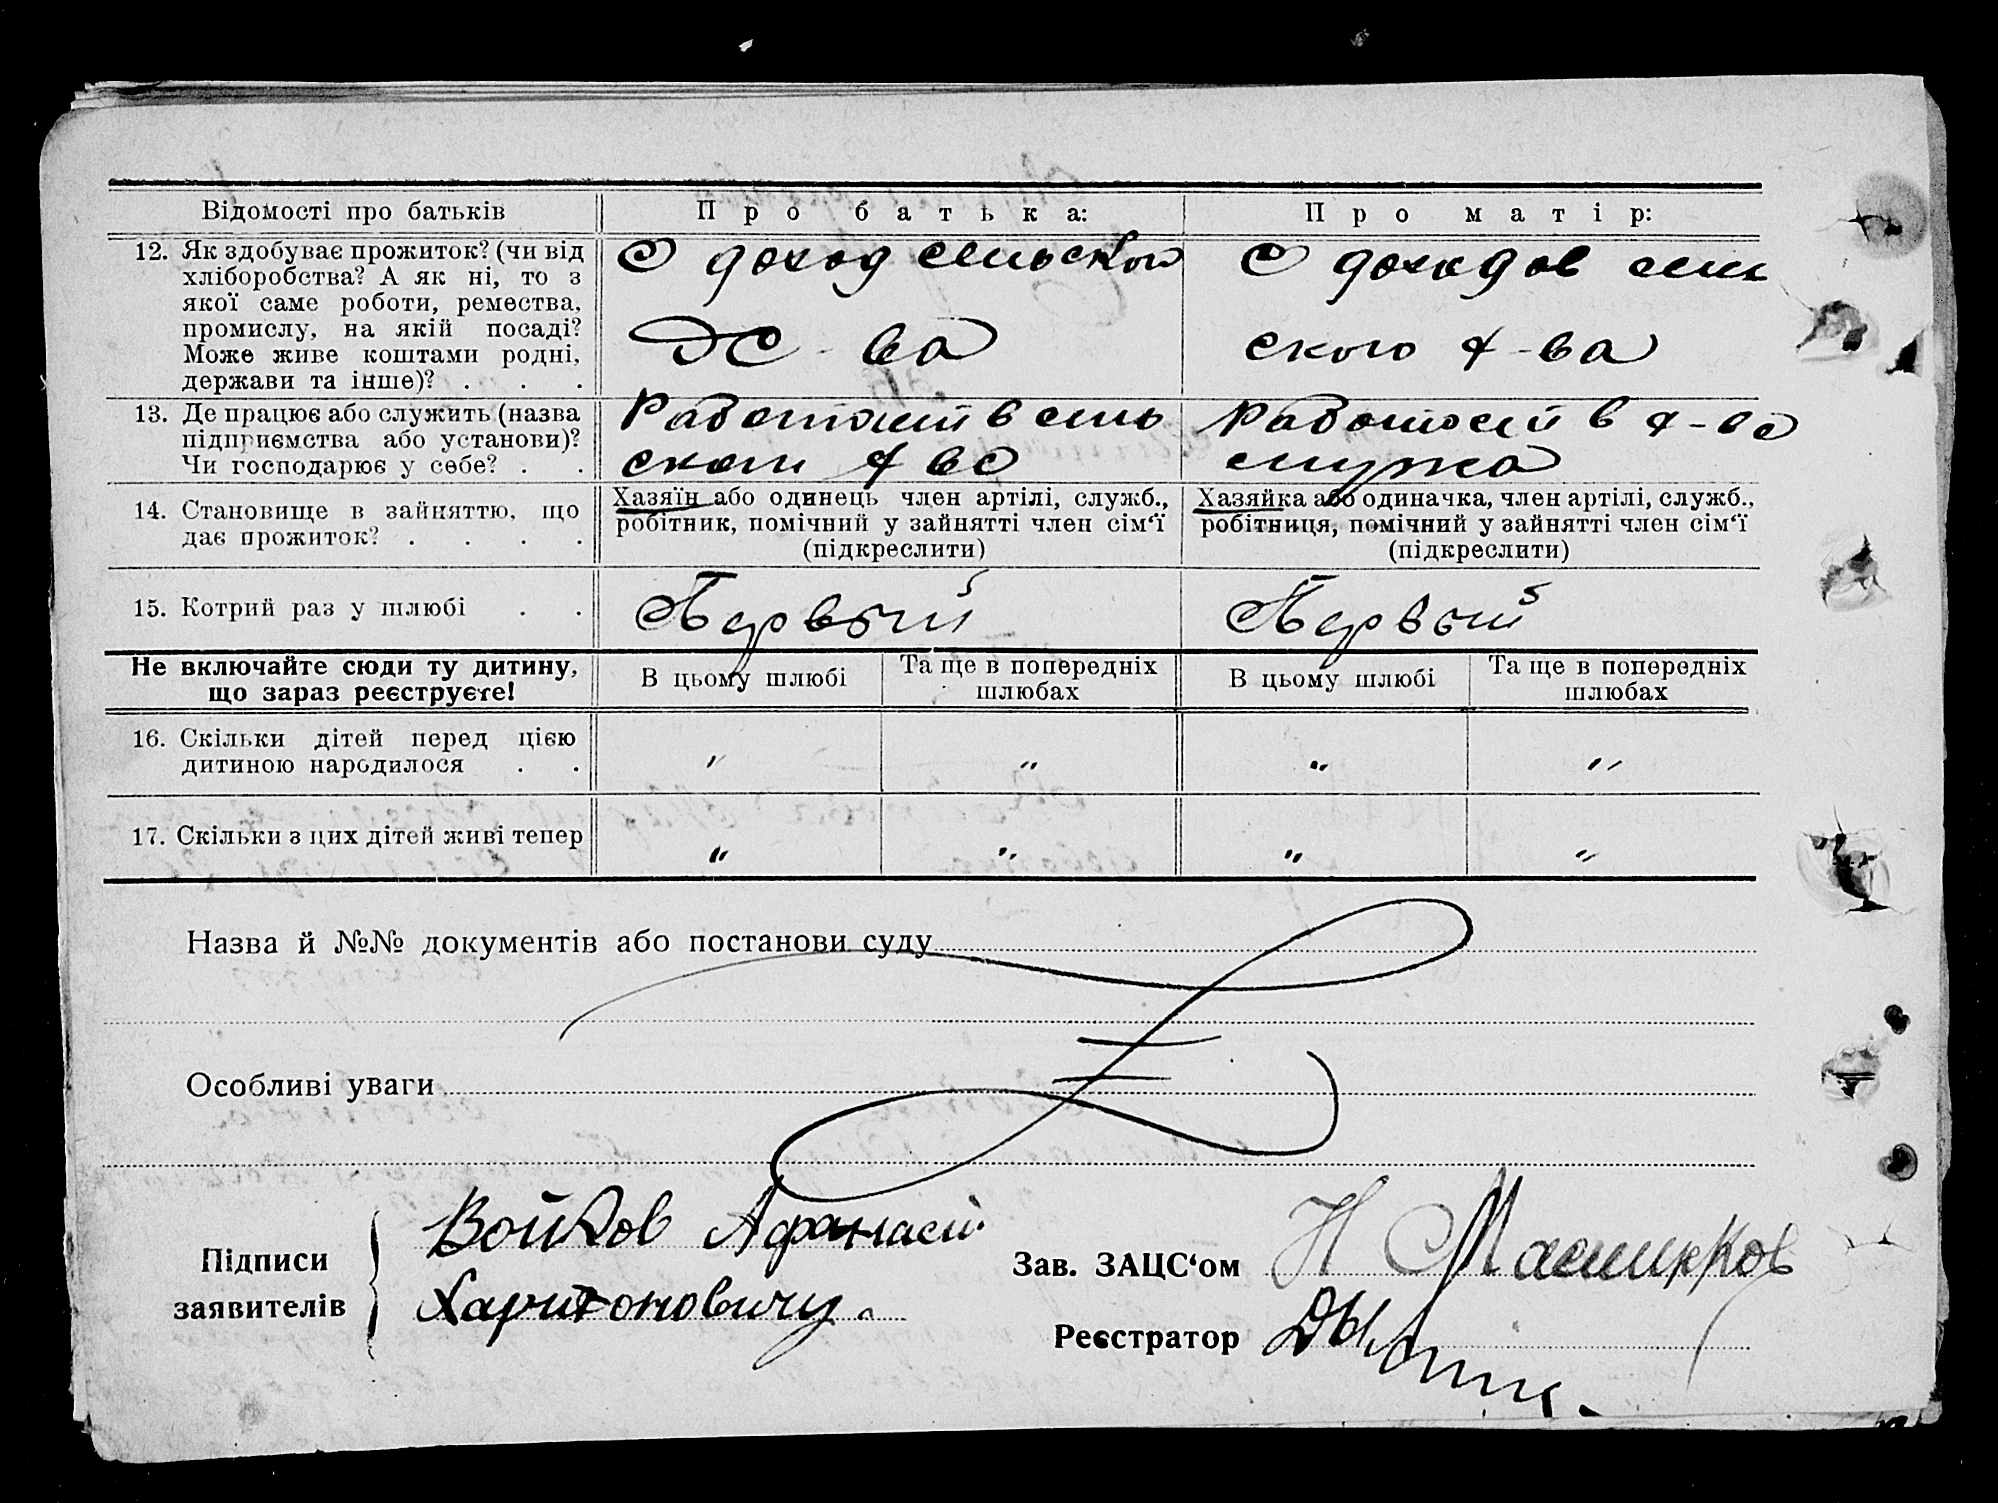 Відомості про батьків
Про батька:
Про матір:
12. Як здобуває прожиток? (чи від
хліборобства? А як ні, то з
якої саме роботи, ремества,
промислу, на якій посаді?
Може живе коштами родні,
держави та інше)? . . .
С доход сельского
Х-ва
С доходов сель
ского х-ва
13. Де працює або служить (назва
підприємства або установи)?
Чи господарює у себе? . .
Работает в сель
ском х-ве
Работает в х-ве
мужа
14. Становище в зайняттю, що
дає прожиток? . . . .
Хазяїн або одинець член артілі, служб.,
робітник, помічний у зайнятті член сім'ї
(підкреслити)
Хазяйка або одиначка, член артілі, служб.,
робітниця, помічний у зайнятті член сім'ї
(підкреслити)
15. Котрий раз у шлюбі . .
Первый
Первый
Не включайте сюди ту дитину,
що зараз реєструєте!
В цьому шлюбі
Та ще в попередніх
шлюбах
В цьому шлюбі
Та ще в попередніх
шлюбах
16. Скільки дітей перед цією
дитиною народилося . .
" " " "
17. Скільки з цих дітей живі тепер
" " " "
Назва й №№ документів або постанови суду
Особливі уваги
Підписи
заявителів
Войков Афанасий
Харитоновичу.
Зав. ЗАЦС'ом
Н
Реєстратор